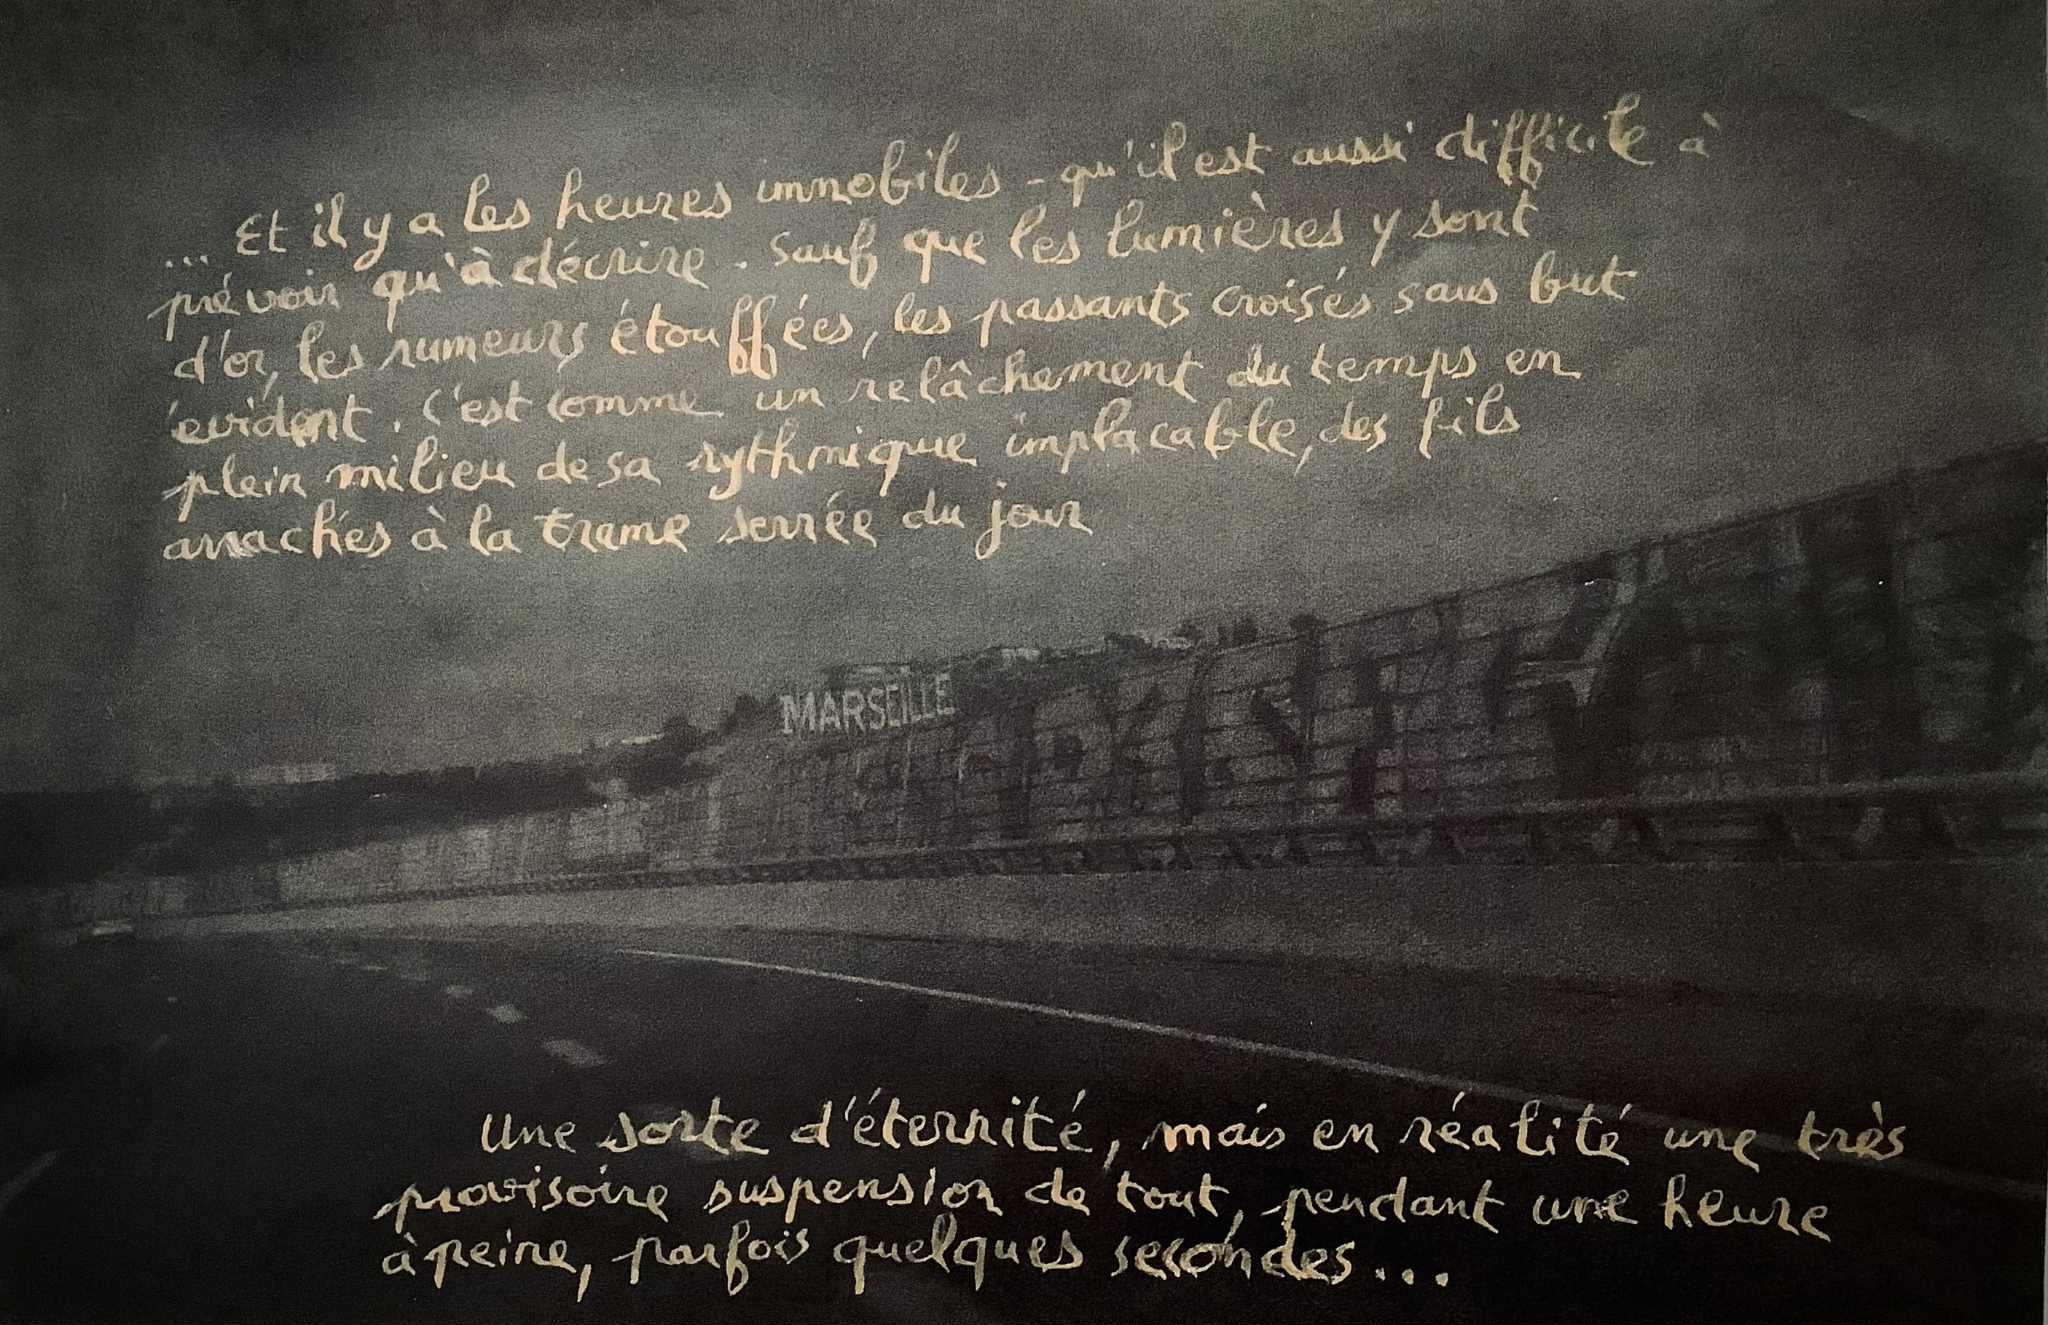 ... Et il y a les heures immobiles - qu'il est aussi difficile à
prévoir qu'à décrire. Sauf que les lumières y sont
d'or, les rumeurs étouffées, les passants croisés sans but
évident. C'est comme un relâchement du temps en
plein milieu de sa rythmique implacable, des fils
arrachés à la trame serrée du jour
MARSEILLE
Une sorte d'éternité, mais en réalité une très
provisoire suspension de tout, pendant une heure
à peine, parfois quelques secondes...